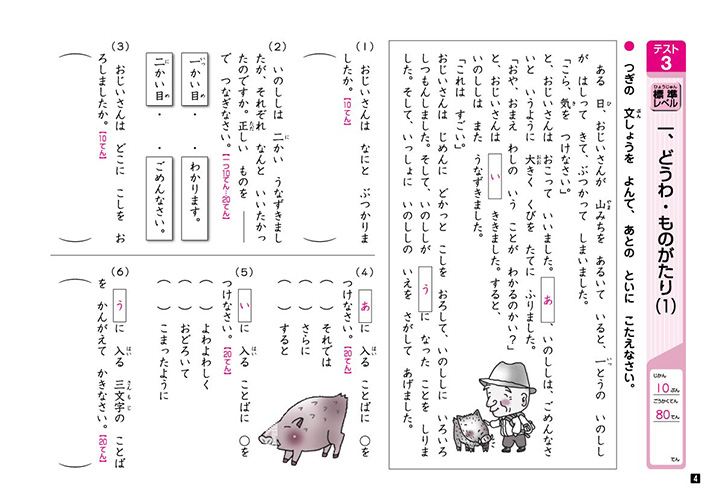 テスト3
標準レベル
ひょうじゅん
一、どうわ・ものがたり(1)
じかん
10ぷん
ごうかくてん
80てん
てん
● つぎの 文しょうを よんで、あとの といに こたえなさい。
ぶん
ある 日、おじいさんが 山みちを あるいて いると、一とうの いのしし
が はしって きて、ぶつかって しまいました。
「こら、気を つけなさい。」
と、おじいさんは おこって いいました。 あ 、いのししは、ごめんなさ
いと いうように 大きく くびを たてに ふりました。
「おや、おまえ わしの いう ことが わかるのかい?」
と、おじいさんは い ききました。すると、
いのししは また うなずきました。
「これは すごい。」
おじいさんは じめんに どかっと こしを おろして、いのししに いろいろ
しつもんしました。そして、いのししが う に なった ことを しりま
した。そして、いっしょに いのししの いえを さがして あげました。
(1) おじいさんは なにと ぶつかりま
したか。【10てん】
(2) いのししは 二かい うなずきまし
たが、それぞれ なんと いいたかっ
たのですか。正しい ものを ――
で つなぎなさい。【一つ10てん…20てん】
一かい目・ ・わかります。
二かい目・ ・ごめんなさい。
(3) おじいさんは どこに こしを お
ろしましたか。【10てん】
(4) あ に 入る ことばに ○を
つけなさい。【20てん】
( ) それでは
( ) さらに
( ) すると
(5) い に 入る ことばに ○を
つけなさい。【20てん】
( ) よわよわしく
( ) おどろいて
( ) こまったように
(6) う に 入る 三文字の ことば
を かんがえて かきなさい。【20てん】
4